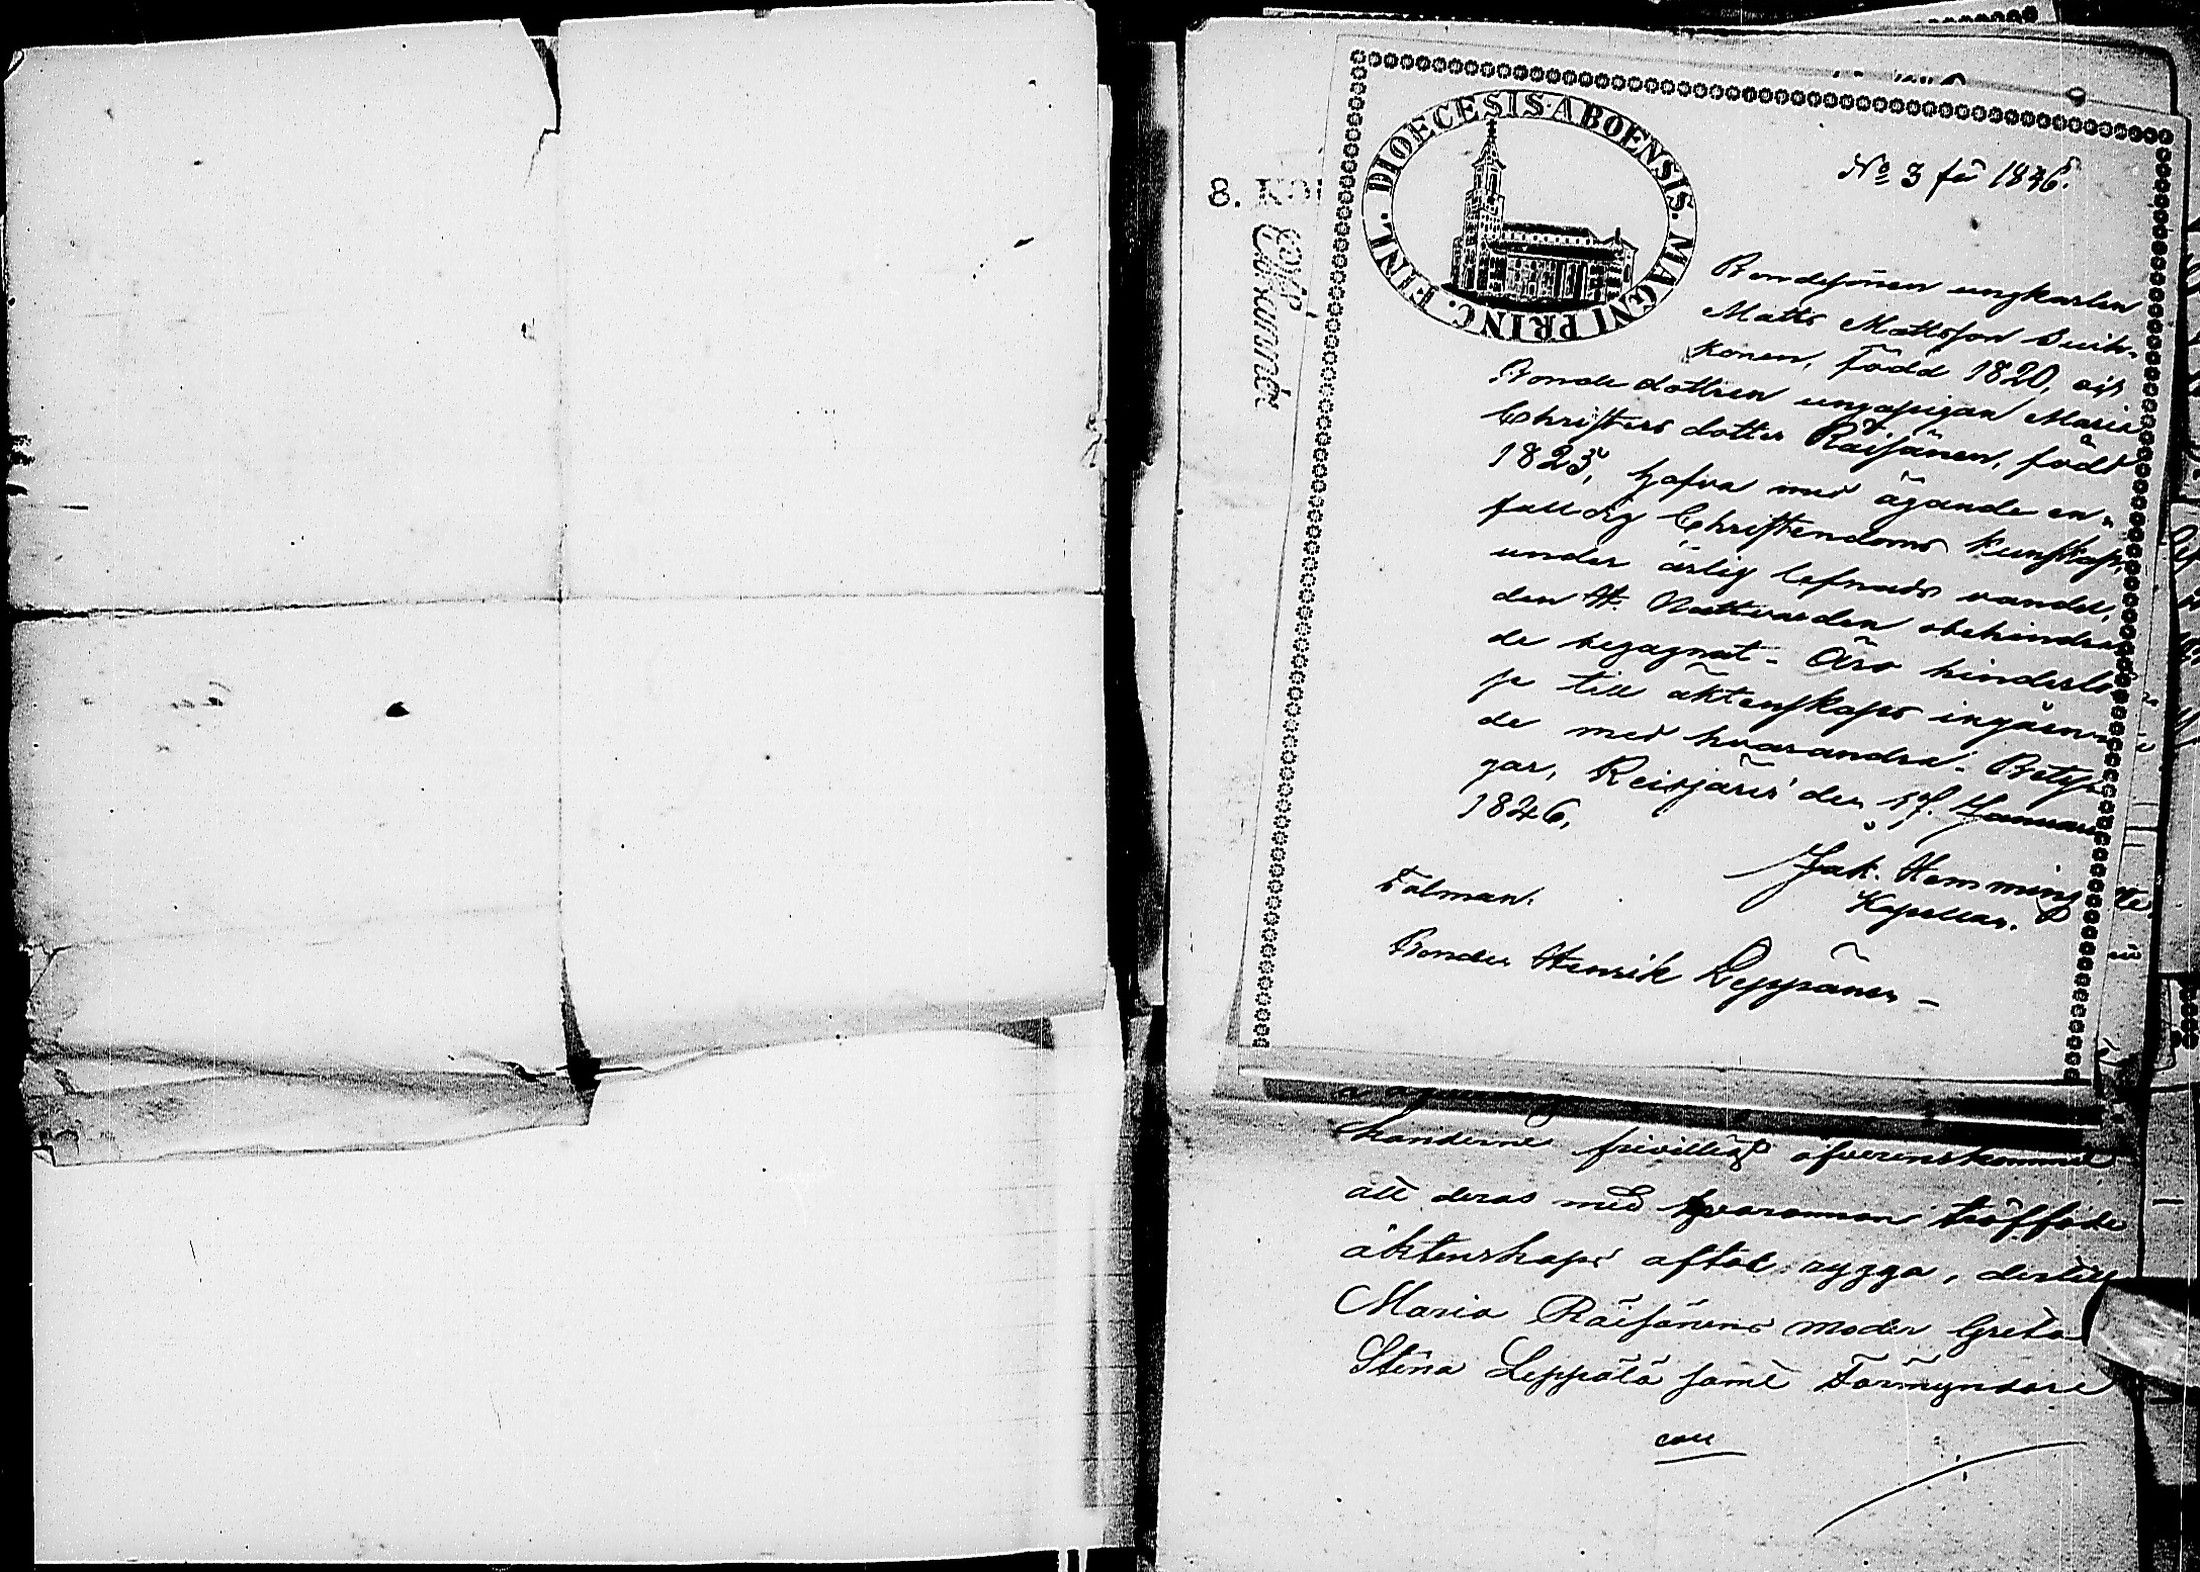 DIOECESIS ABOENSIS. MAGNI PRINC. FINL.
8. KO
No 3 för 1846.
Bondesonen ungkarlen
Matts Mattsson Suih-
konen, född 1820, och
Bonde dottren ungapigan Maria
Christers dotter Räisänen, född
1823, hafva med ägande en-
faldig Christendoms kunskap,
under ärlig lefnads vandel,
den H. Nattvarden obehindra
de begagnat - Äro hinderlö
se till äktenskaps ingåen-
de med hvarandra. Bety-
gar, Reisjärvi den 17. Januari
1846,
Jak. Hemming
Kapellan.
Talman.
Bonden Henrik Leppänen -
handerne frivilligt öfverenskommit
att deras med hvarannan träffade
äktenskaps aftal rygga, dertill
Maria Räisänens moder Greta
Stina Leppälä samt Förmyndare